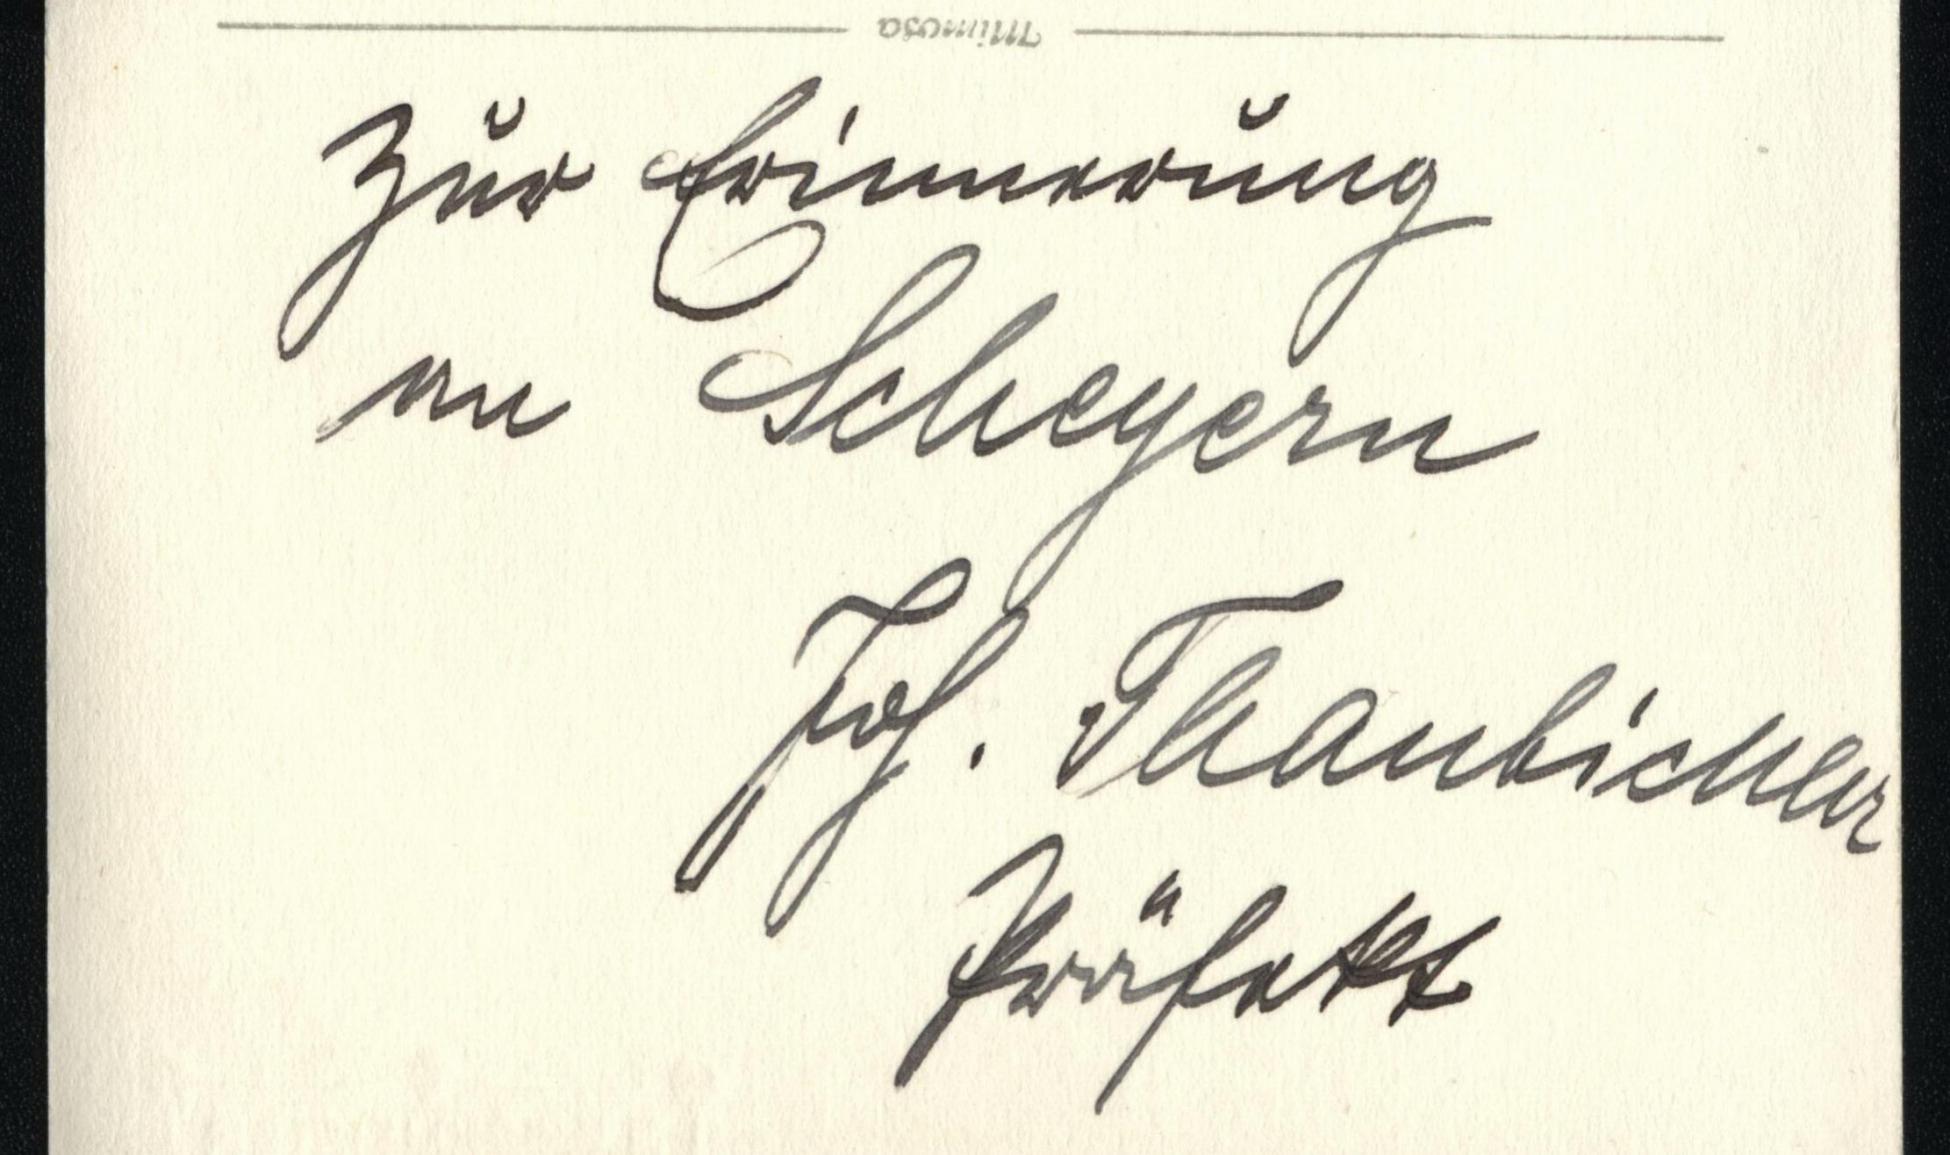 Mimosa
Zur Erinnerung
an Scheyern
Jos. Thanbichler
Präfekt